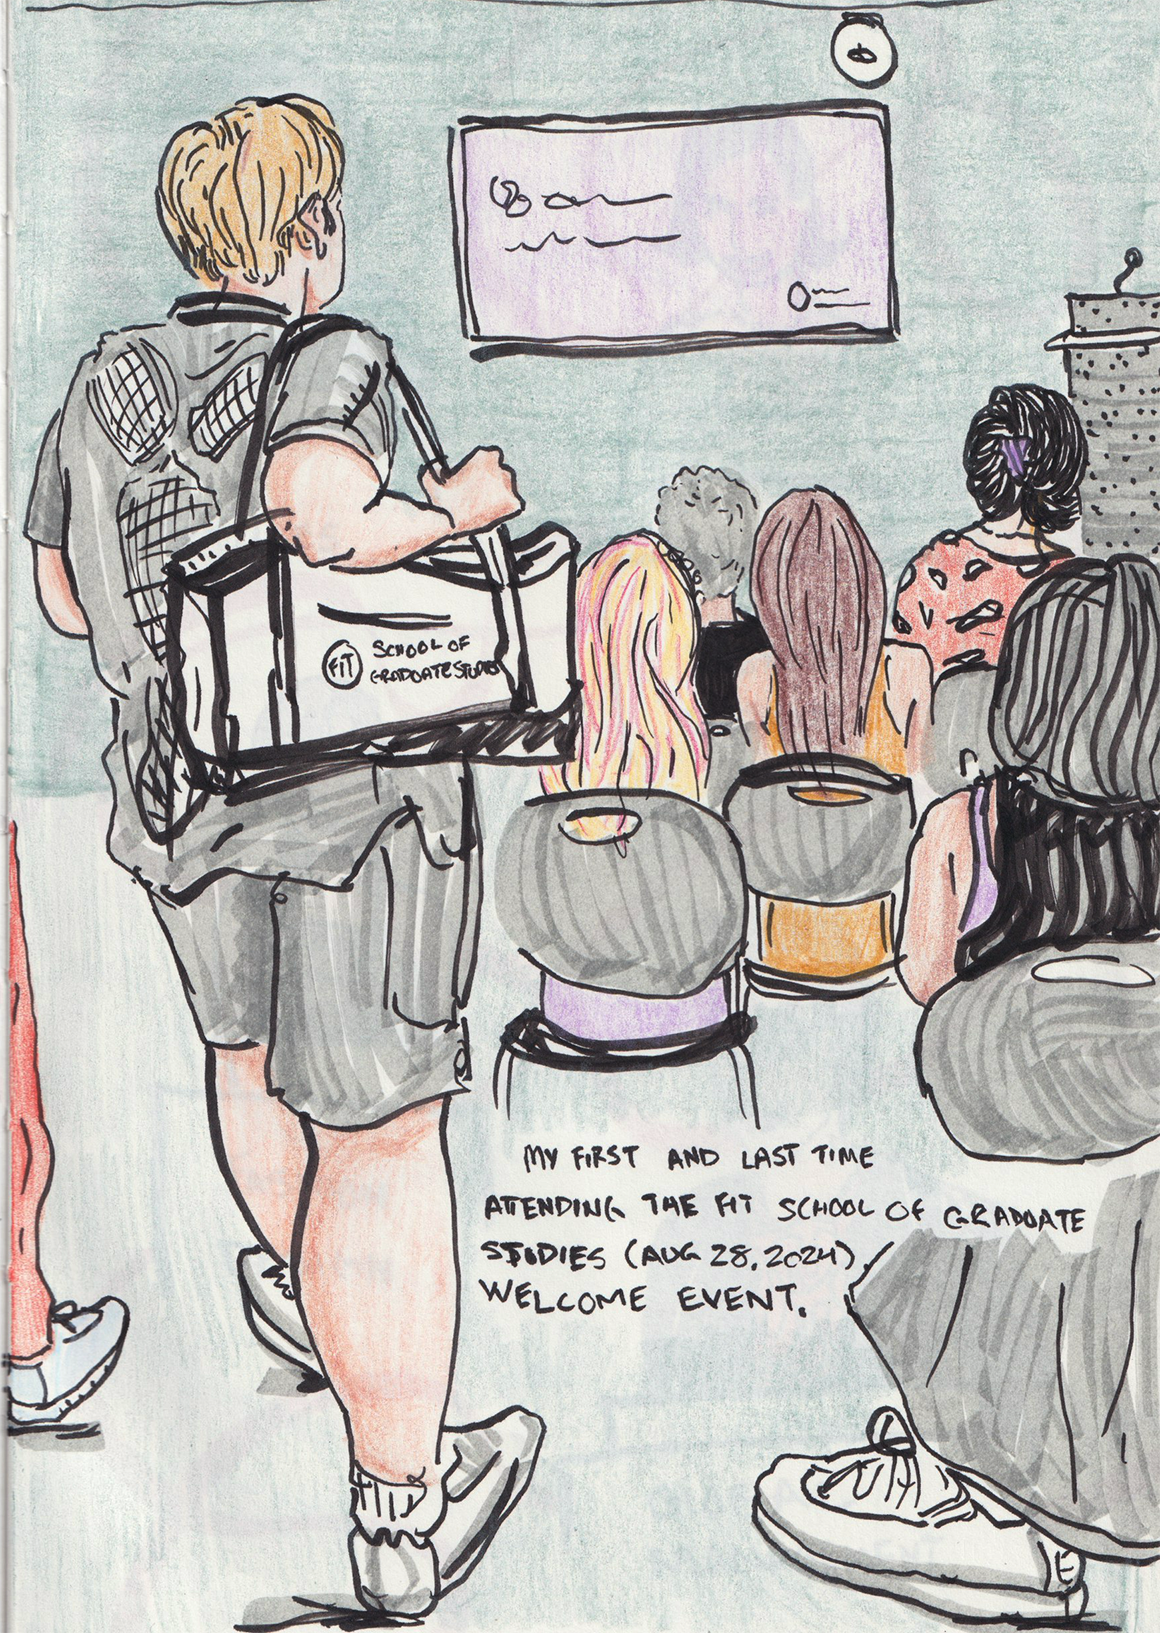 FIT
SCHOOL OF
GRADUATE STUDIES
MY FIRST AND LAST TIME
ATTENDING THE FIT SCHOOL OF GRADUATE
STUDIES (AUG 28, 2024)
WELCOME EVENT.